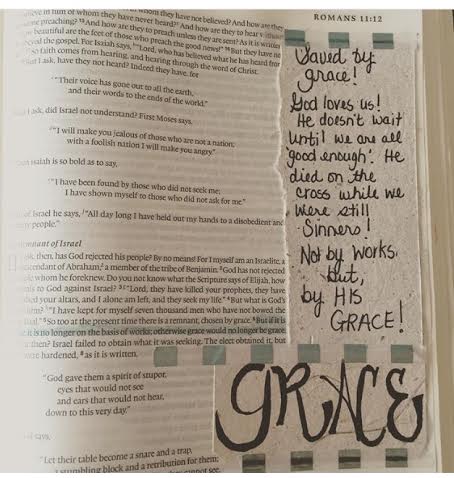 ROMANS 11:12
in him of whom they have never heard? And how are they to hear
preaching? 15And how are they to preach unless they are sent? As it is written,
beautiful are the feet of those who preach the good news!" 16But they have not
the gospel. For Isaiah says, "Lord, who has believed what he has heard from
So faith comes from hearing, and hearing through the word of Christ.
But I ask, have they not heard? Indeed they have, for
"Their voice has gone out to all the earth,
and their words to the ends of the world."
ask, did Israel not understand? First Moses says,
"I will make you jealous of those who are not a nation;
with a foolish nation I will make you angry."
Isaiah is so bold as to say,
"I have been found by those who did not seek me;
I have shown myself to those who did not ask for me."
of Israel he says, "All day long I have held out my hands to a disobedient and
people."
of Israel
then, has God rejected his people? By no means! For I myself am an Israelite, a
descendant of Abraham, a member of the tribe of Benjamin. 2God has not rejected
whom he foreknew. Do you not know what the Scripture says of Elijah, how
to God against Israel? 3"Lord, they have killed your prophets, they have
your altars, and I alone am left, and they seek my life." 4But what is God's
"I have kept for myself seven thousand men who have not bowed the
5So too at the present time there is a remnant, chosen by grace. 6But if it is
it is no longer on the basis of works; otherwise grace would no longer be grace.
then? Israel failed to obtain what it was seeking. The elect obtained it, but
were hardened, 8as it is written,
"God gave them a spirit of stupor,
eyes that would not see
and ears that would not hear,
down to this very day."
says,
"Let their table become a snare and a trap,
a stumbling block and a retribution for them;
Saved by
grace!
God loves us!
He doesn't wait
until we are all
"good enough". He
died on the
cross while we
were still
Sinners!
Not by works
but,
by HIS
GRACE!
GRACE